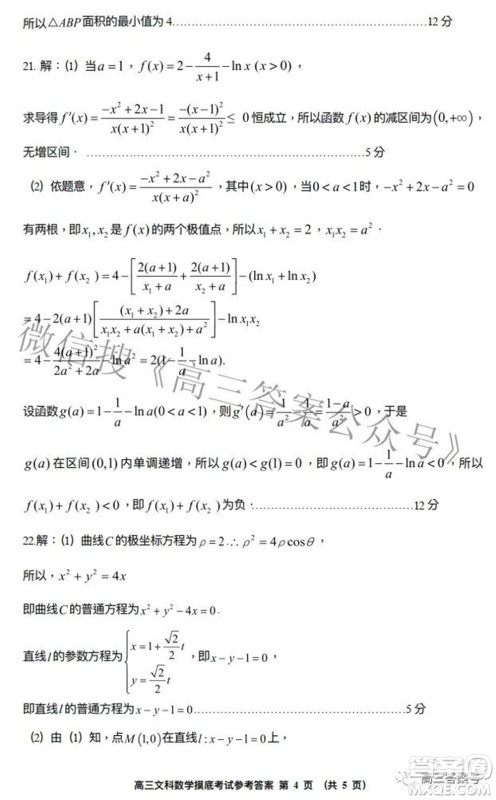 所以△ABP面积的最小值为4……12分
21. 解：(1) 当a=1，f(x)=2-4/(x+1)-ln x (x>0)，
求导得f'(x)=(-x²+2x-1)/(x(x+1)²)=-(x-1)²/(x(x+1)²)≤0恒成立，所以函数f(x)的减区间为(0,+∞)，
无增区间．……5分
(2) 依题意，f'(x)=(-x²+2x-a²)/(x(x+a)²)，其中(x>0)，当0<a<1时，-x²+2x-a²=0
有两根，即x₁,x₂是f(x)的两个极值点，所以x₁+x₂=2，x₁x₂=a²．
f(x₁)+f(x₂)=4-[2(a+1)/(x₁+a)+2(a+1)/(x₂+a)]-(ln x₁+ln x₂)
=4-2(a+1)[((x₁+x₂)+2a)/(x₁x₂+a(x₁+x₂)+a²)]-ln x₁x₂
=4-4(a+1)²/(2a²+2a)-ln a²=2(1-1/a-ln a).
设函数g(a)=1-1/a-ln a(0<a<1)，则g'(a)=1/a²-1/a=(1-a)/a²>0，于是
g(a)在区间(0,1)内单调递增，所以g(a)<g(1)=0，即g(a)=1-1/a-ln a<0，所以
f(x₁)+f(x₂)<0，即f(x₁)+f(x₂)为负．……12分
22.解：(1) 曲线C的极坐标方程为ρ=2∴ρ²=4ρcosθ，
所以，x²+y²=4x
即曲线C的普通方程为x²+y²-4x=0．
直线l的参数方程为{x=1+(√2/2)t, y=(√2/2)t，即x-y-1=0，
即直线l的普通方程为x-y-1=0……5分
(2) 由 (1) 知，点M(1,0)在直线l:x-y-1=0上，
高三文科数学摸底考试参考答案 第 4 页 （共 5 页）
微信搜《高三答案公众号》
高三答案号